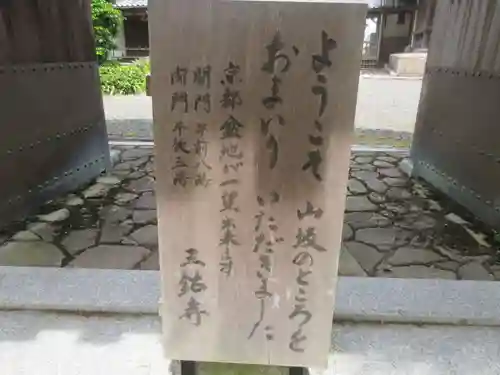 ようこそ 山坂のところを
おまいり いただきました
京都盆地が一望出来ます
開門 午前八時
閉門 午後三時
三鈷寺